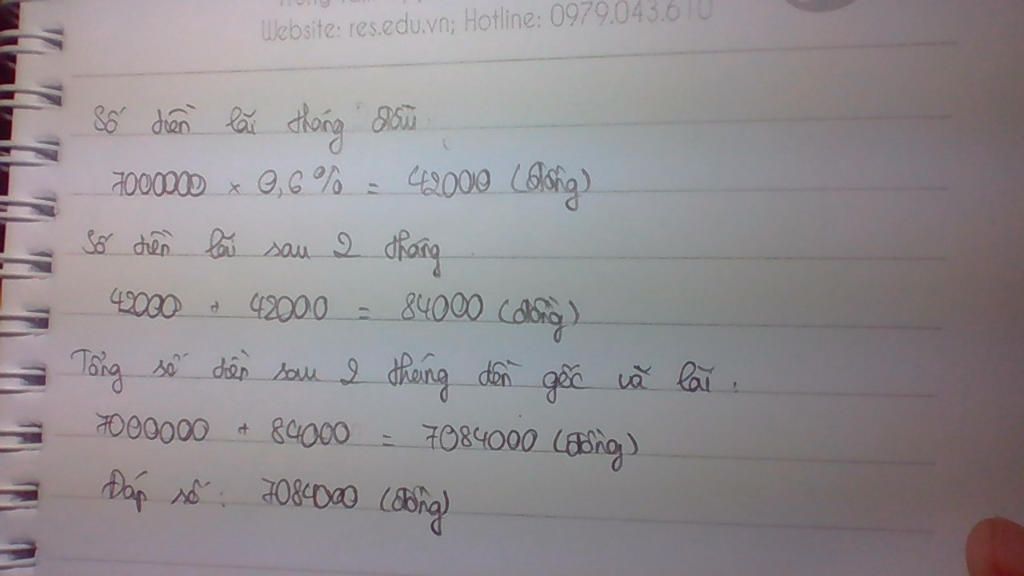 Website: res.edu.vn; Hotline: 0979.043.610
Số tiền lãi tháng đầu
7000000 × 0,6% = 42000 (đồng)
Số tiền lãi sau 2 tháng
42000 + 42000 = 84000 (đồng)
Tổng số tiền sau 2 tháng tiền gốc và lãi.
7000000 + 84000 = 7084000 (đồng)
Đáp số: 7084000 (đồng)